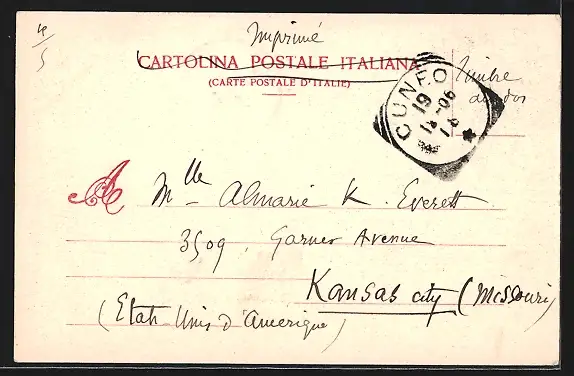 Imprimé
CARTOLINA POSTALE ITALIANA
(CARTE POSTALE D'ITALIE)
Timbre
au dos
CUNEO
19
A
Mlle Almarie K. Everett
3509. Garner Avenue
Kansas city (Missouri)
(Etats Unis d'Amerique)